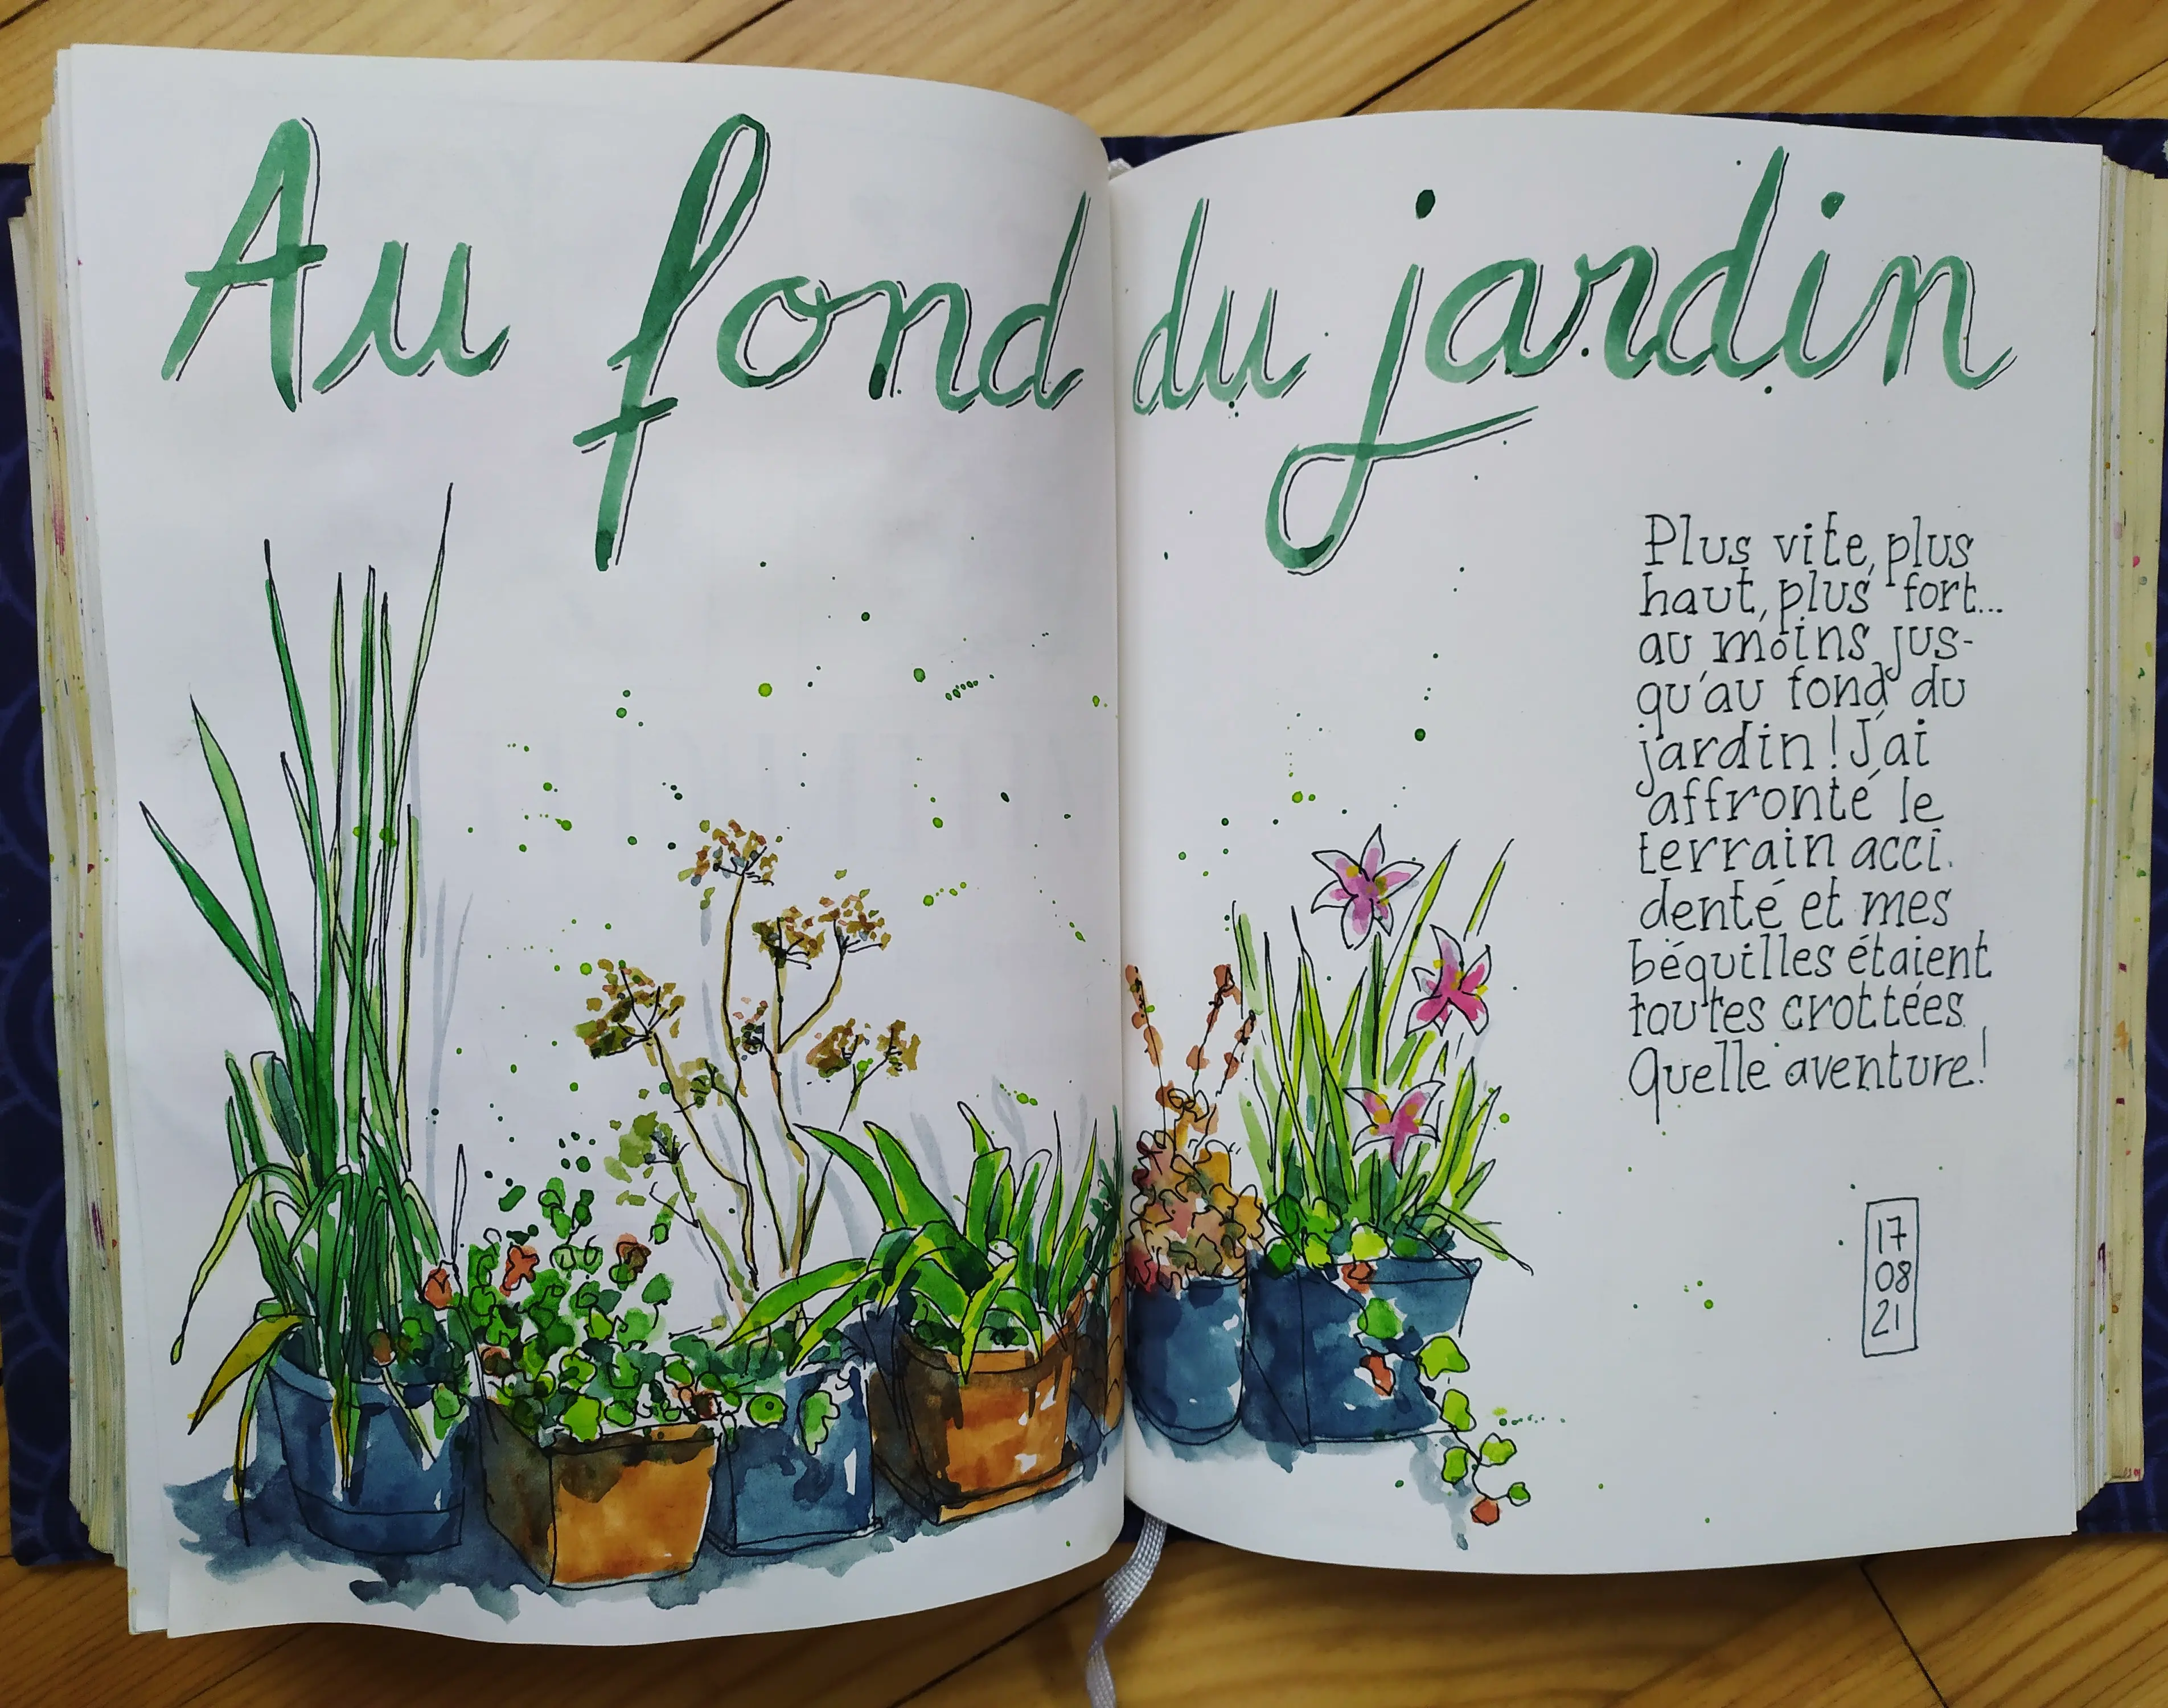 Au fond du jardin
Plus vite, plus
haut, plus fort...
au moins jus-
qu'au fond du
jardin! J'ai
affronté le
terrain acci-
denté et mes
béquilles étaient
toutes crottées.
Quelle aventure!
17
08
21